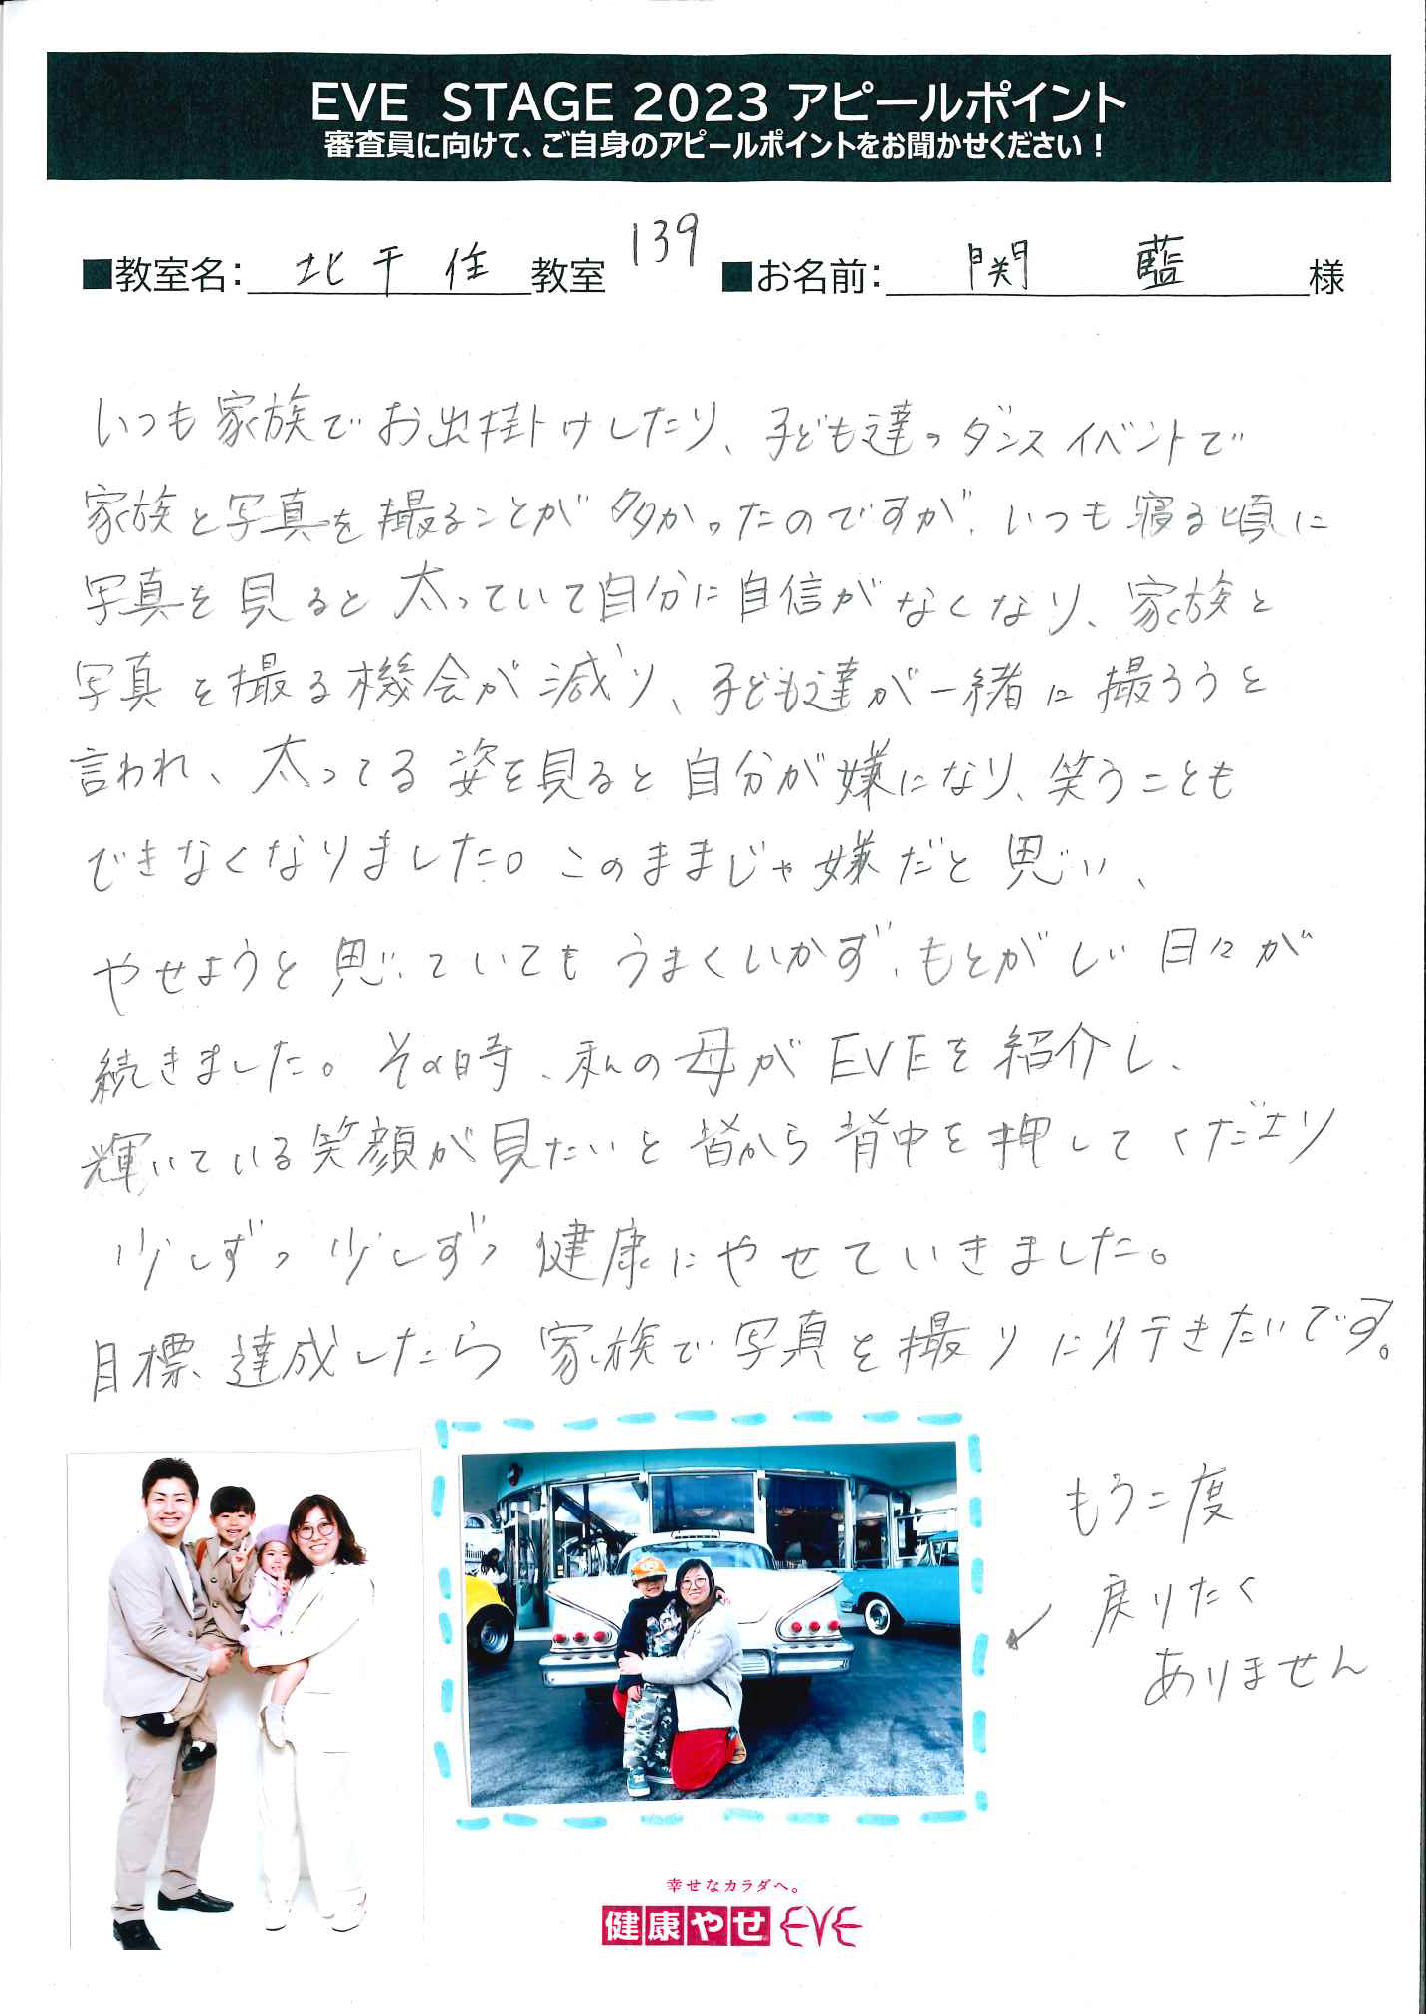 EVE STAGE 2023 アピールポイント
審査員に向けて、ご自身のアピールポイントをお聞かせください！
139
■教室名：北千住教室 ■お名前：関 藍 様
いつも家族でお出掛けしたり、子ども達のダンスイベントで
家族と写真を撮ることが多かったのですが、いつも寝る頃に
写真を見ると太っていて自分に自信がなくなり、家族と
写真を撮る機会が減り、子ども達が一緒に撮ろうと
言われ、太ってる姿を見ると自分が嫌になり、笑うことも
できなくなりました。このままじゃ嫌だと思い、
やせようと思っていてもうまくいかず、もとがしい日々が
続きました。その時、私の母がEVEを紹介し、
輝いている笑顔が見たいと皆から背中を押してくださり
少しずつ少しずつ健康にやせていきました。
目標達成したら家族で写真を撮りに行きたいです。
もう二度
戻りたく
ありません
幸せなカラダへ。
健康やせ EVE